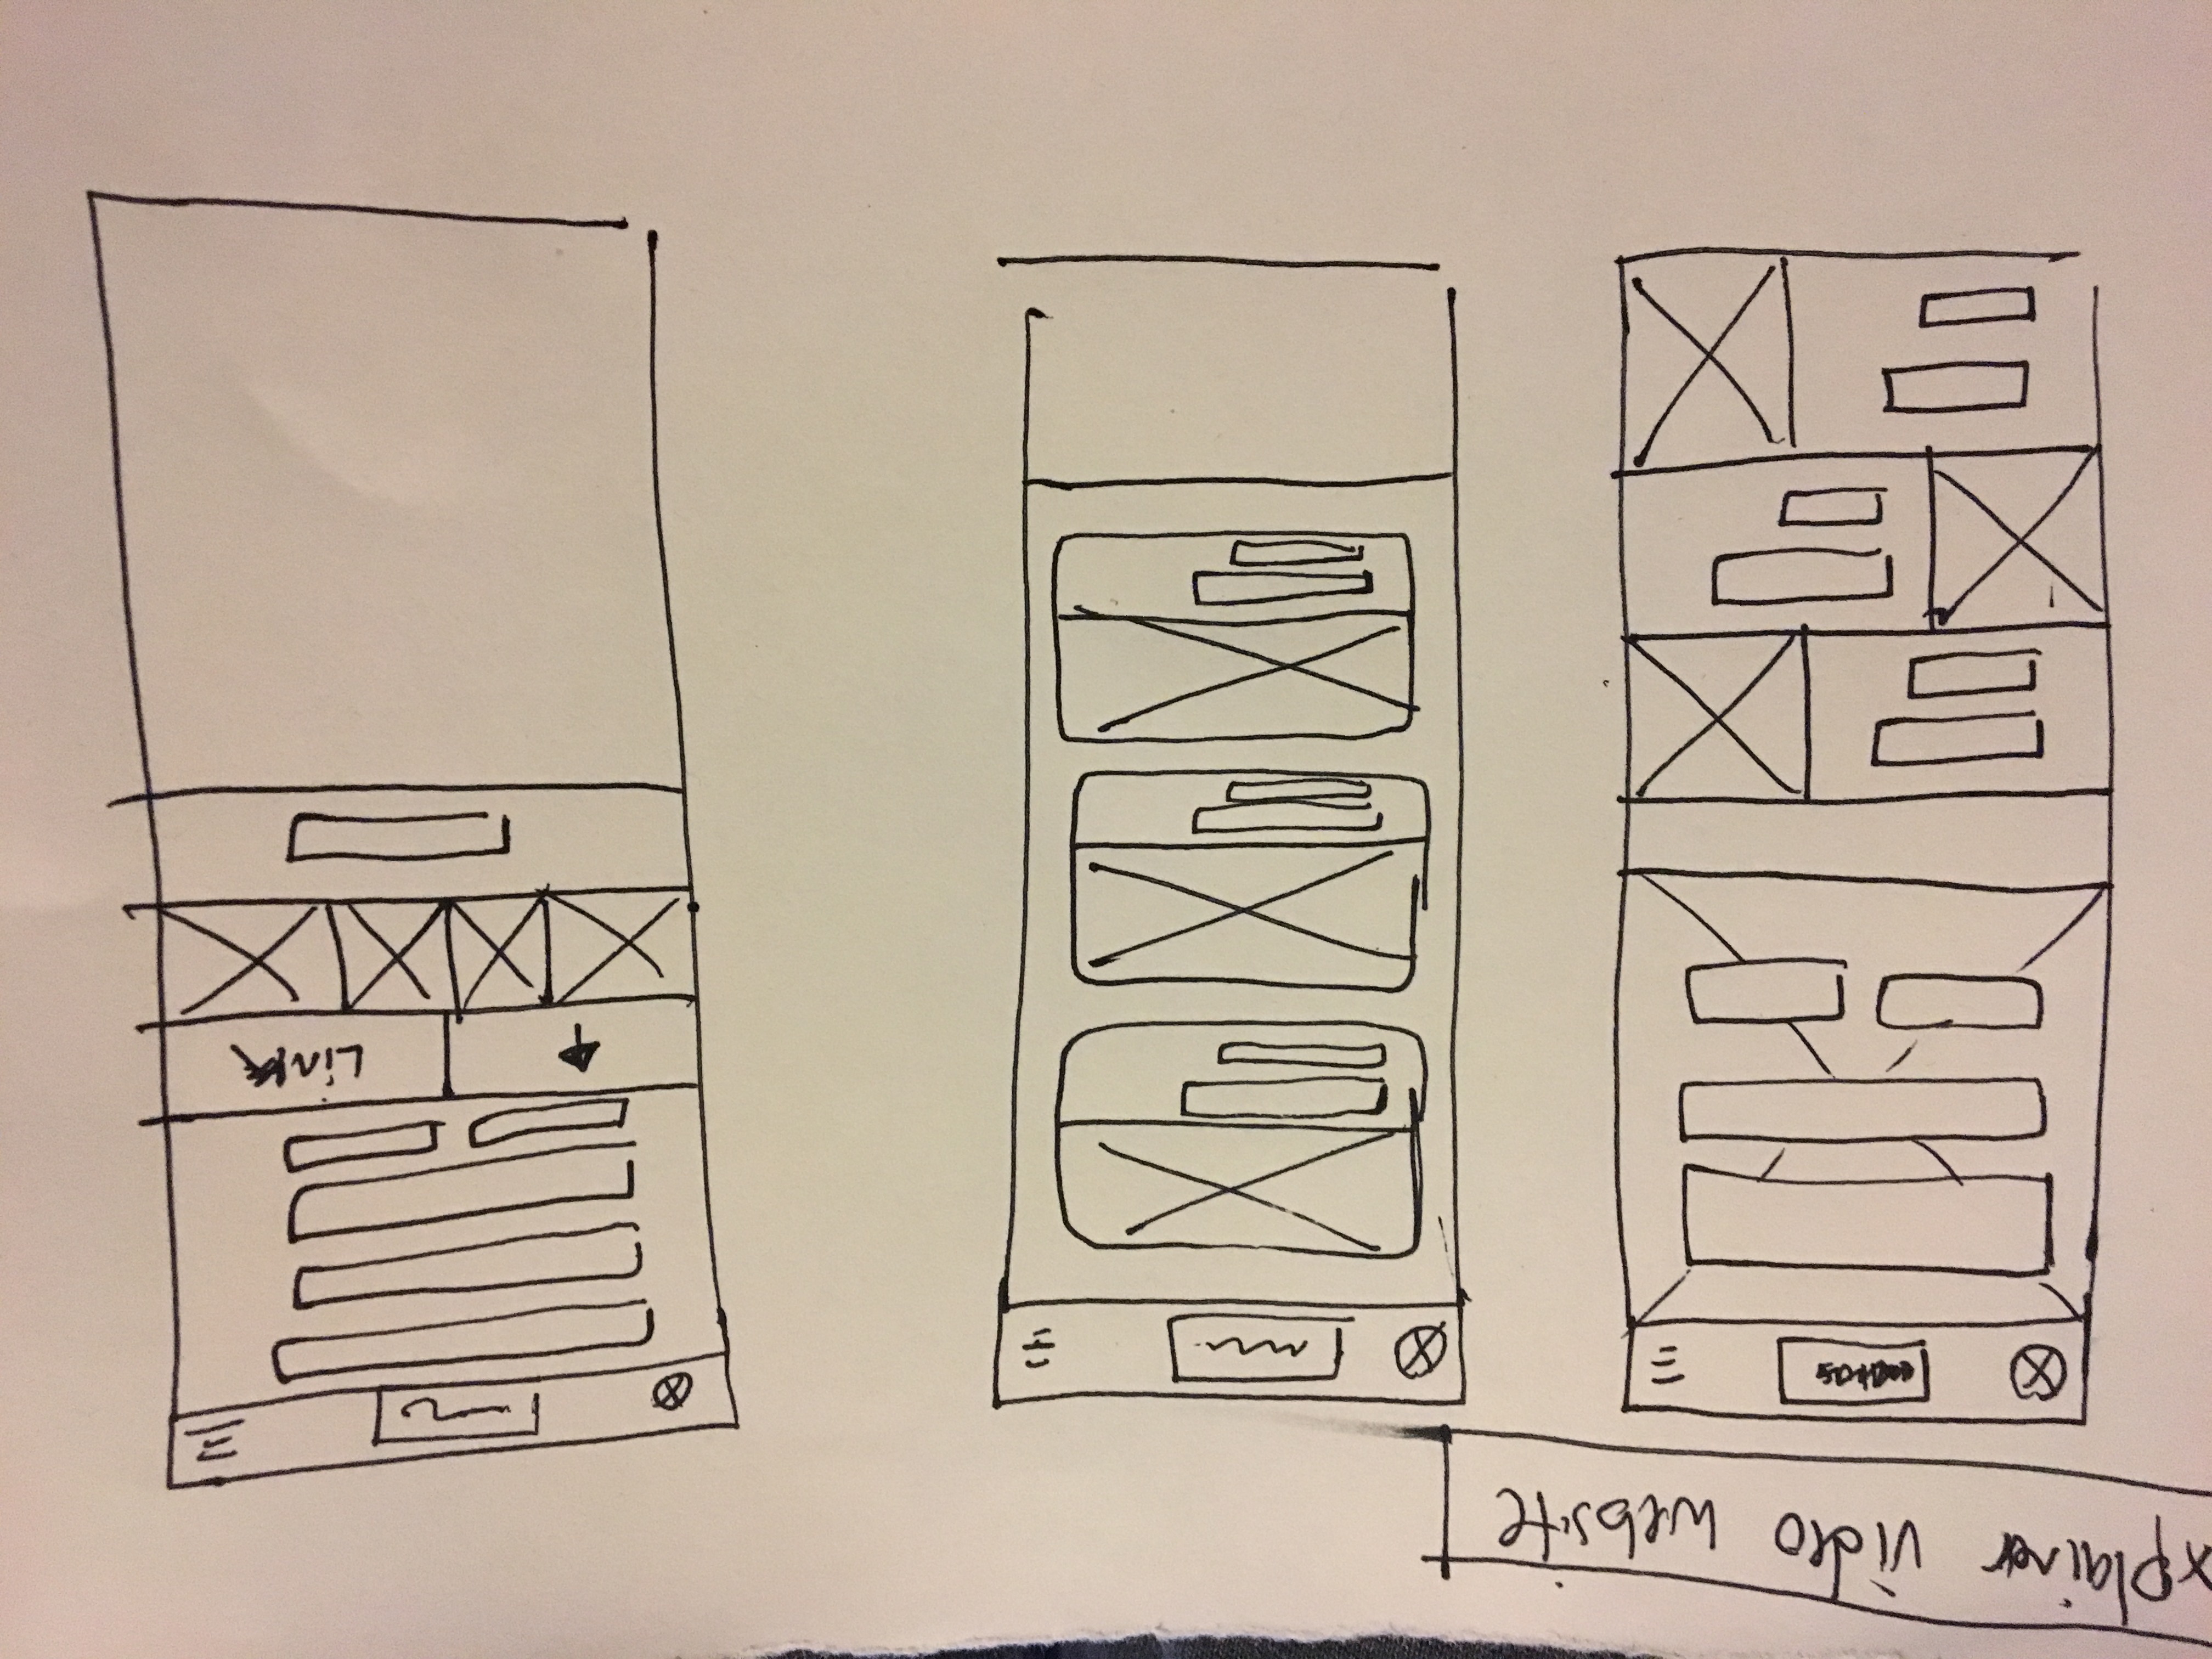 xplainer video website
Link